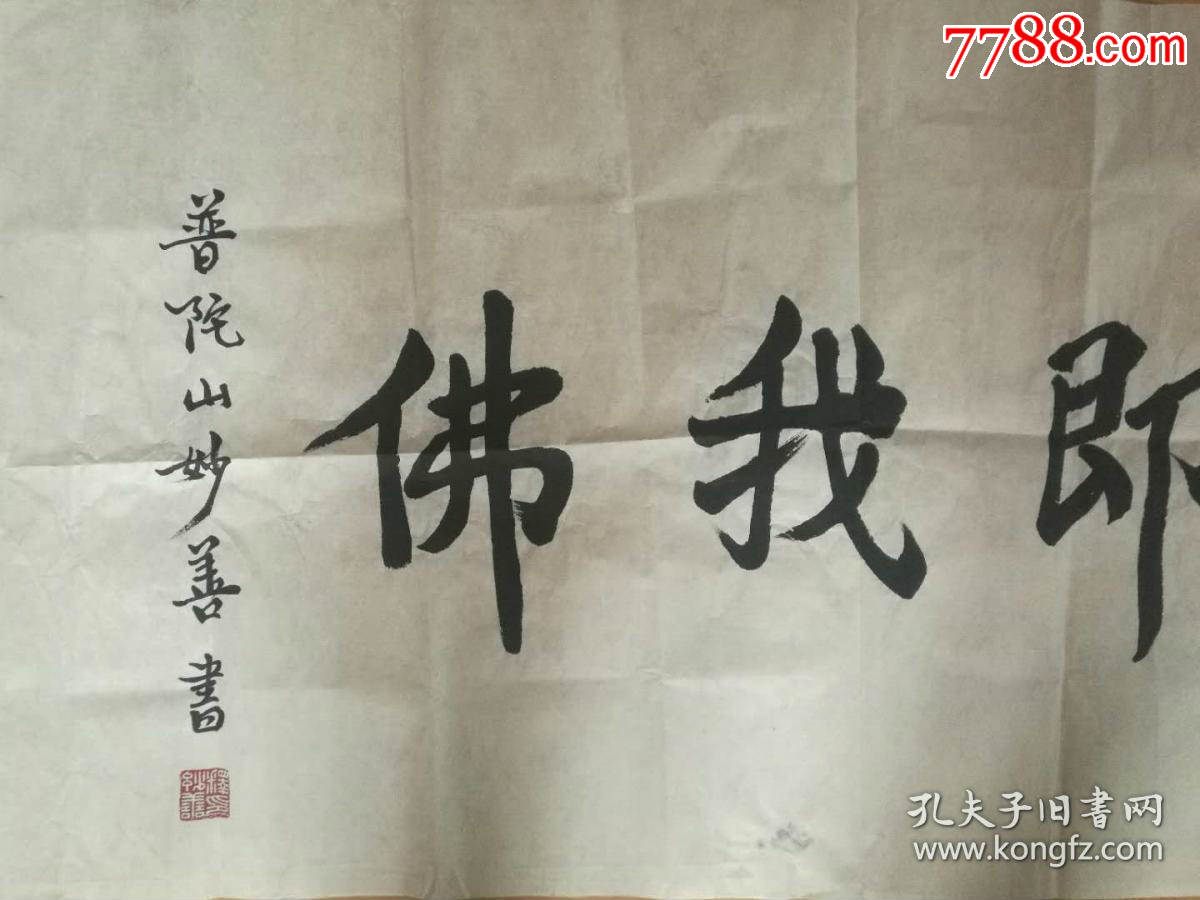 7788.com
即我佛
普陀山妙善書
孔夫子旧书网
www.kongfz.com